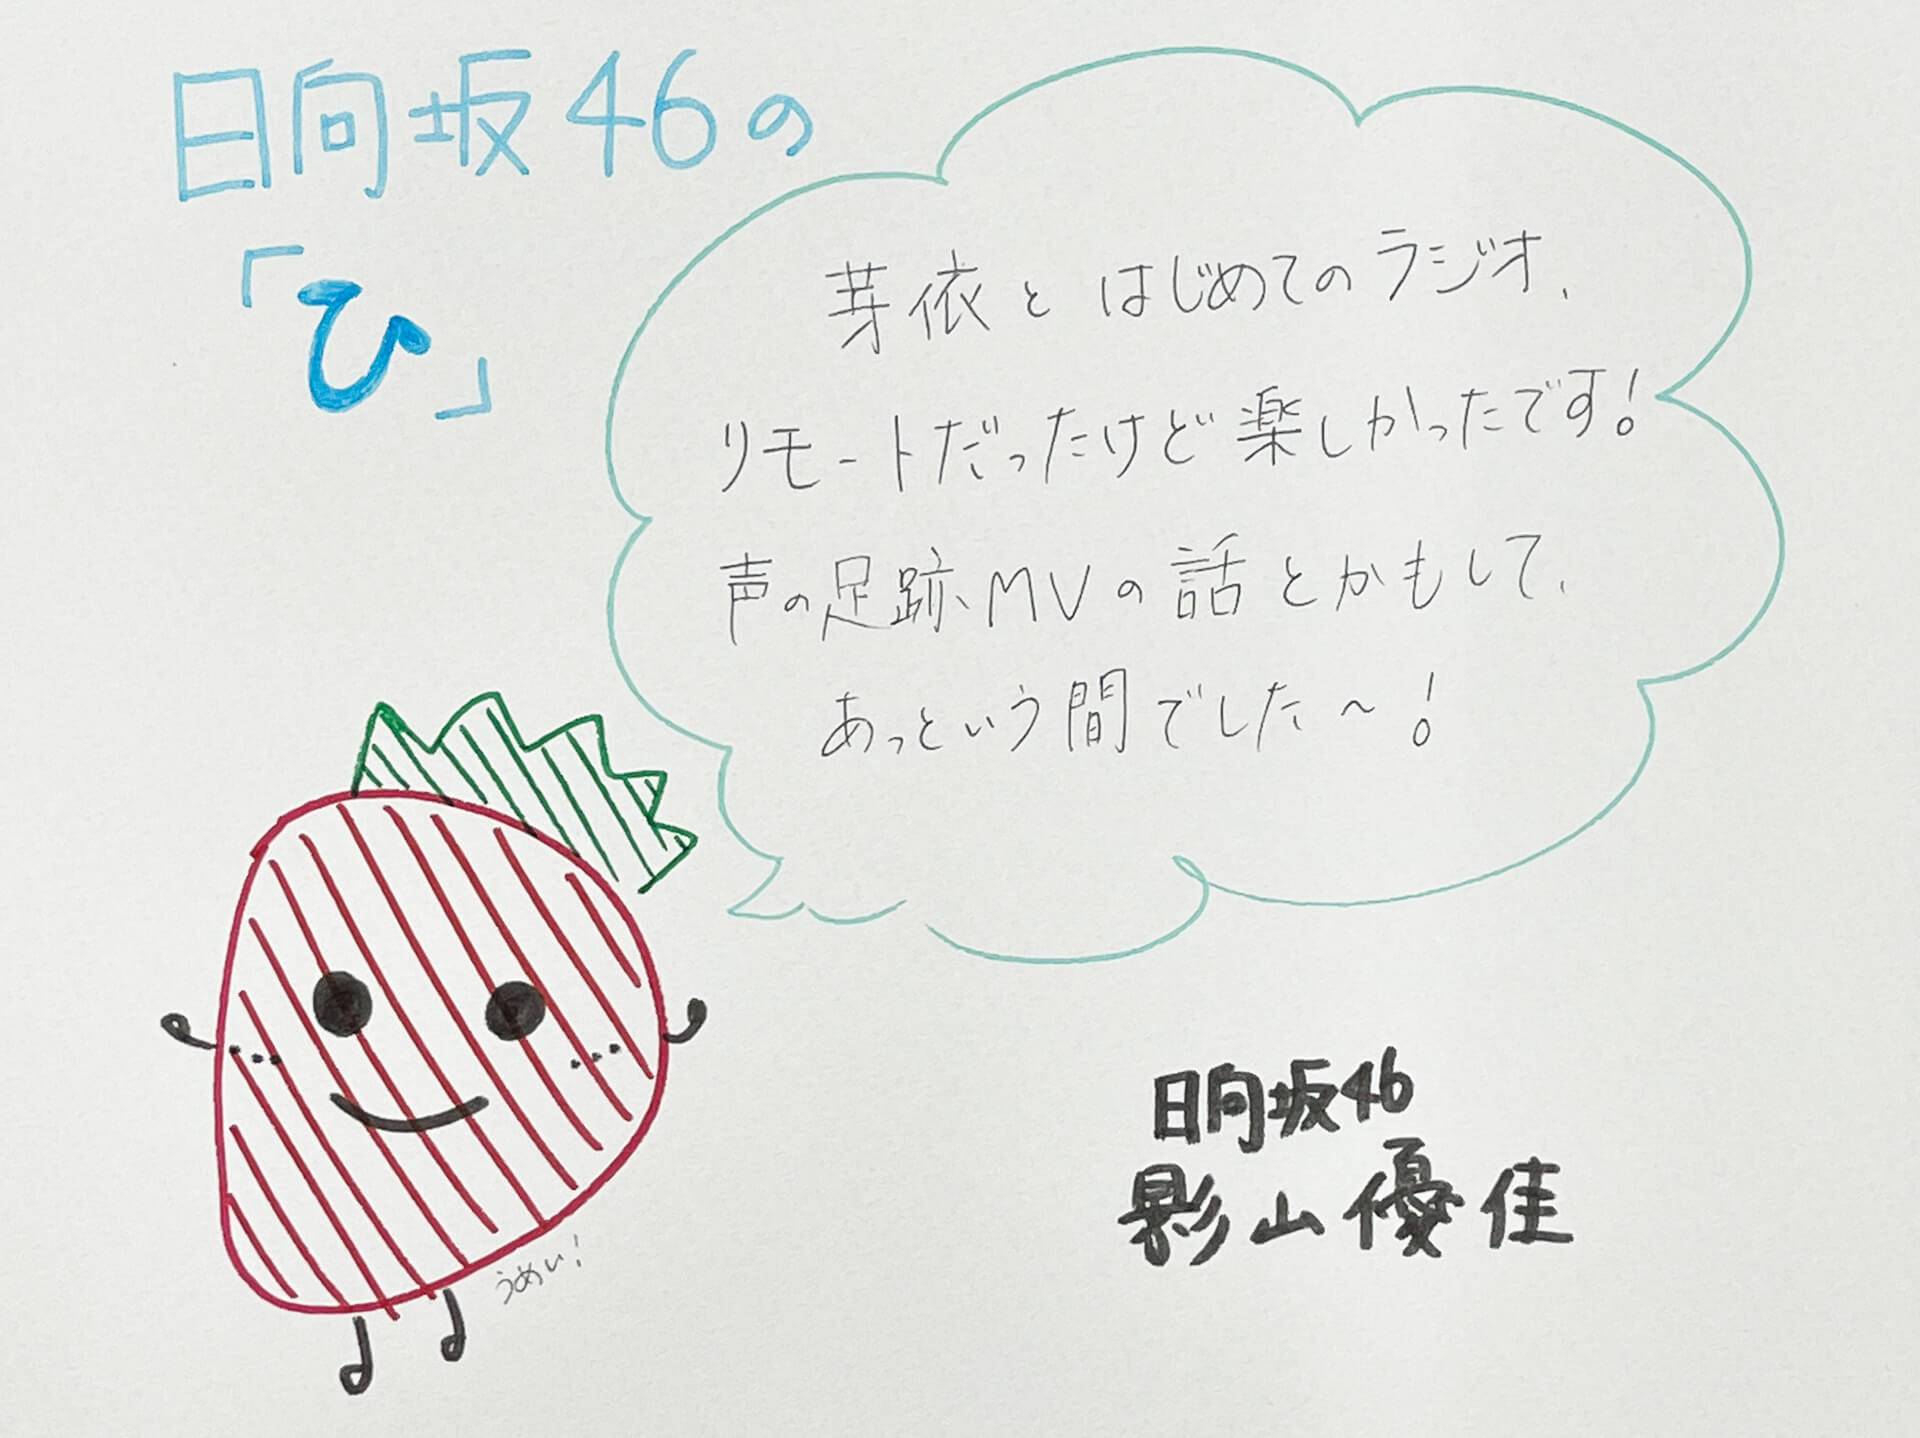 日向坂46の
「ひ」
芽依とはじめてのラジオ、
リモートだったけど楽しかったです!
声の足跡MVの話とかもして、
あっという間でした〜!
うめい!
日向坂46
影山優佳